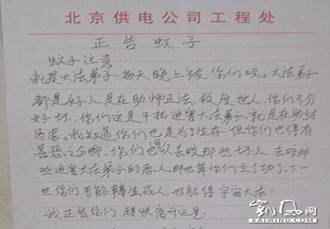 北京供电公司工程处
正告蚊子
蚊子注意：
我是大法弟子，每天晚上被你们咬。大法弟子
都是好人是在助师正法，救度世人。你们不分
好坏，你们这是干扰迫害大法弟子，就是在助纣
为虐。我知道你们也是为了生存但你们也得有
善恶之分哪，你们可以去咬那些坏人去咬那
些迫害大法弟子的恶人，那也算你们立了功了，下一
世你们有可能转生成人也能修宇宙大法！
我正告你们赶快离开这里
凯风网
KAIWIND.COM